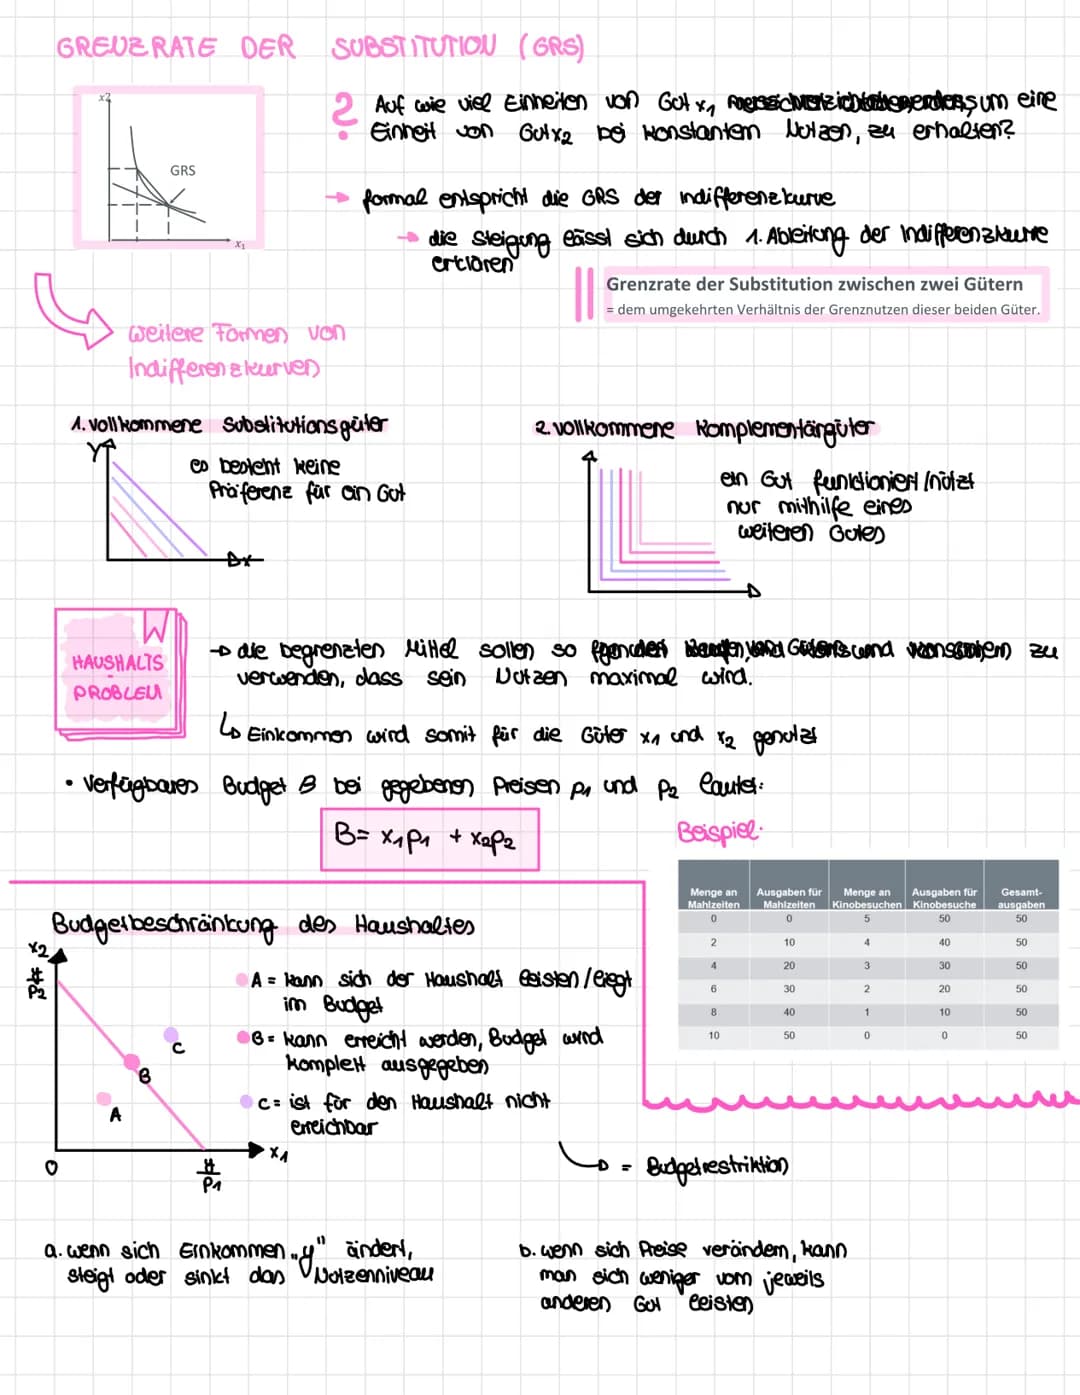 GRENZRATE DER SUBSTITUTION (GRS)
x2
GRS
x1
? Auf wie viel Einheiten von Gut x1 um eine
Einheit von Gut x2 bei konstantem Nutzen, zu erhalten?
→ formal entspricht die GRS der indifferenzkurve
→ die Steigung lässt sich durch 1. Ableitung der Indifferenzkurve
erklären
Grenzrate der Substitution zwischen zwei Gütern
= dem umgekehrten Verhältnis der Grenznutzen dieser beiden Güter.
weitere Formen von
Indifferenzkurven
1. vollkommene Substitutionsgüter
y
es besteht keine
Präferenz für ein Gut
x
2. vollkommene Komplementärgüter
ein Gut funktioniert/nützt
nur mithilfe eines
weiteren Gutes
HAUSHALTS
-
PROBLEM
→ die begrenzten Mittel sollen so und zu
verwenden, dass sein Nutzen maximal wird.
↳ Einkommen wird somit für die Güter x1 und x2 genutzt
• Verfügbares Budget B bei gegebenen Preisen p1 und p2 lautet:
B= x1p1 + x2p2
Beispiel:
Menge an Mahlzeiten Ausgaben für Mahlzeiten Menge an Kinobesuchen Ausgaben für Kinobesuche Gesamt-ausgaben
0 0 5 50 50
2 10 4 40 50
4 20 3 30 50
6 30 2 20 50
8 40 1 10 50
10 50 0 0 50
Budgetbeschränkung des Haushaltes
x2
P2
A = kann sich der Haushalt leisten/liegt
im Budget
B = kann erreicht werden, Budget wird
komplett ausgegeben
C = ist für den Haushalt nicht
erreichbar
C
B
A
0
x1
P1
= Budgetrestriktion
a. wenn sich Einkommen „y" ändert,
steigt oder sinkt das Nutzenniveau
b. wenn sich Preise verändern, kann
man sich weniger vom jeweils
anderen Gut leisten